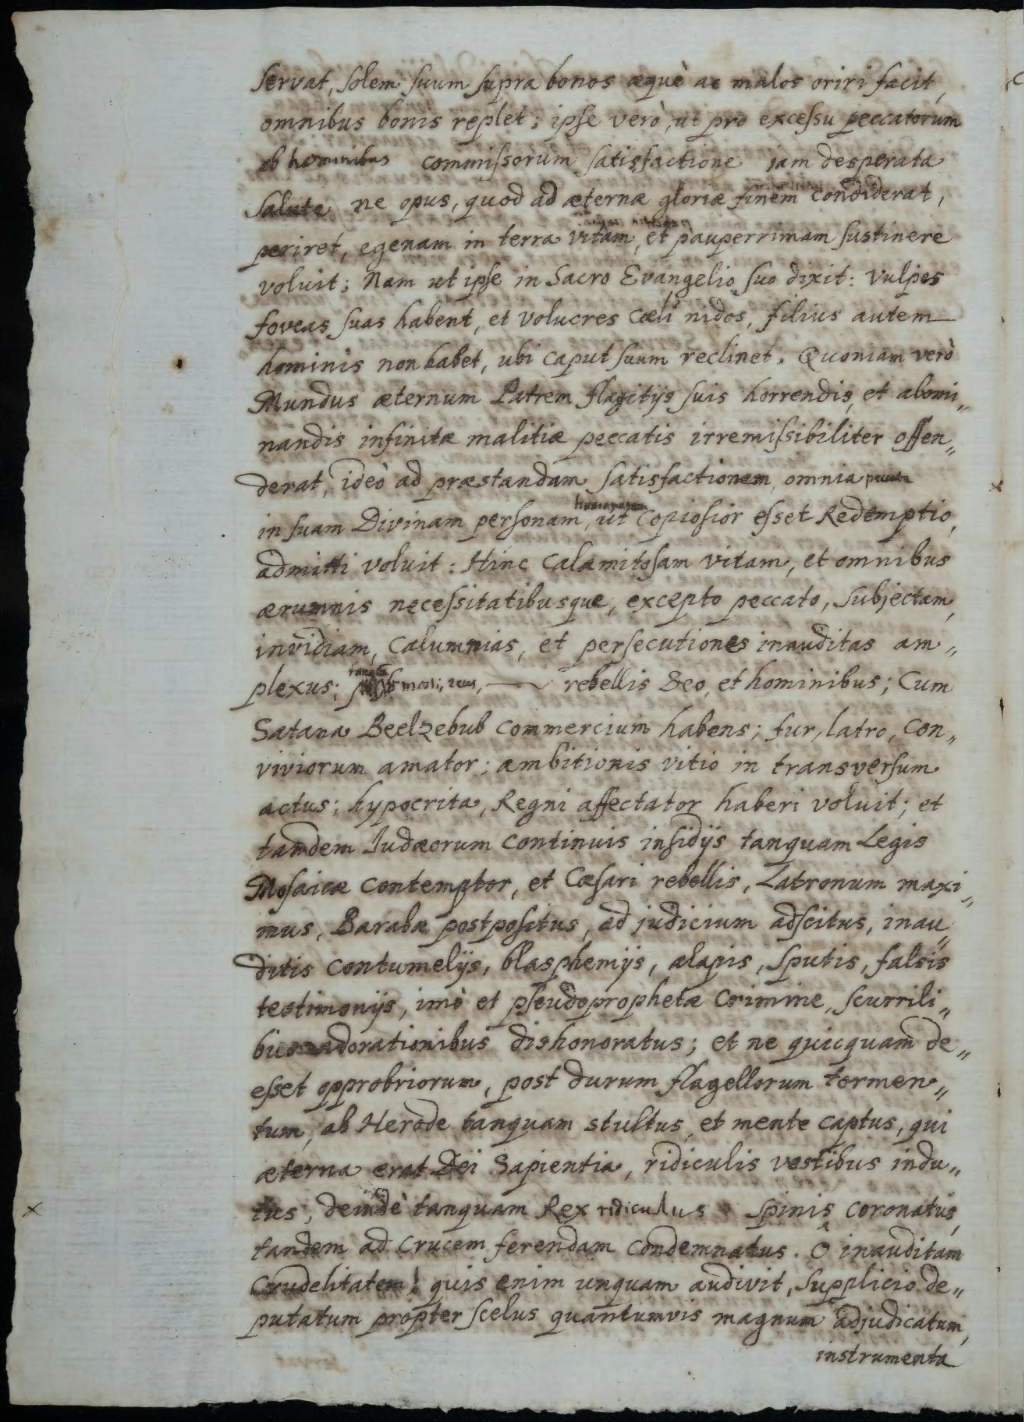 servat, solem suum supra bonos æquè ac malos oriri facit,
omnibus bonis replet; ipse verò, ut pro excessu peccatorum
ab hominibus commissorum satisfactione iam desperata
salute ne opus, quod ad æternæ gloriæ finem condiderat,
periret, egenam in terra vitam, et pauperrimam sustinere
voluit; Nam ut ipse in Sacro Evangelio suo dixit: Vulpes
foveas suas habent, et volucres Cœli nidos, filius autem
hominis non habet, ubi caput suum reclinet. Quoniam verò
Mundus æternum Patrem flagitijs suis horrendis, et abomi„
nandis infinitæ malitiæ peccatis irremissibiliter offen„
derat, ideò ad præstandam satisfactionem, omnia
in suam Divinam personam, ut copiosior esset Redemptio,
admitti voluit: Hinc calamitosam vitam, et omnibus
ærumnis necessitatibusque, excepto peccato, subjectam,
invidiam, calumnias, et persecutiones inauditas am„
plexus; rebellis Deo, et hominibus; Cum
Satana Beelzebub commercium habens; fur, latro, con„
viviorum amator; ambitionis vitio in transversum
actus; hypocrita, Regni affectator haberi voluit; et
tandem Judæorum continuis insidijs tanquam Legis
Mosaicæ contemptor, et Cæsari rebellis, Latronum maxi„
mus, Barabæ postpositus, ad judicium adscitus, inau„
ditis contumelijs, blasphemijs, alapis, sputis, falsis
testimonijs, imò et pseudoprophetæ crimine, scurrili„
bus adorationibus dishonoratus; et ne quicquam de„
esset opprobriorum, post durum flagellorum tormen„
tum, ab Herode tanquam stultus, et mente captus, qui
æterna erat Dei Sapientia, ridiculis vestibus indu„
tus, deindè tanquam Rex ridiculus spinis coronatus,
tandem ad Crucem ferendam condemnatus. O inauditam
Crudelitatem! quis enim unquam audivit, supplicio de„
putatum propter scelus quantumvis magnum adjudicatum,
instrumenta